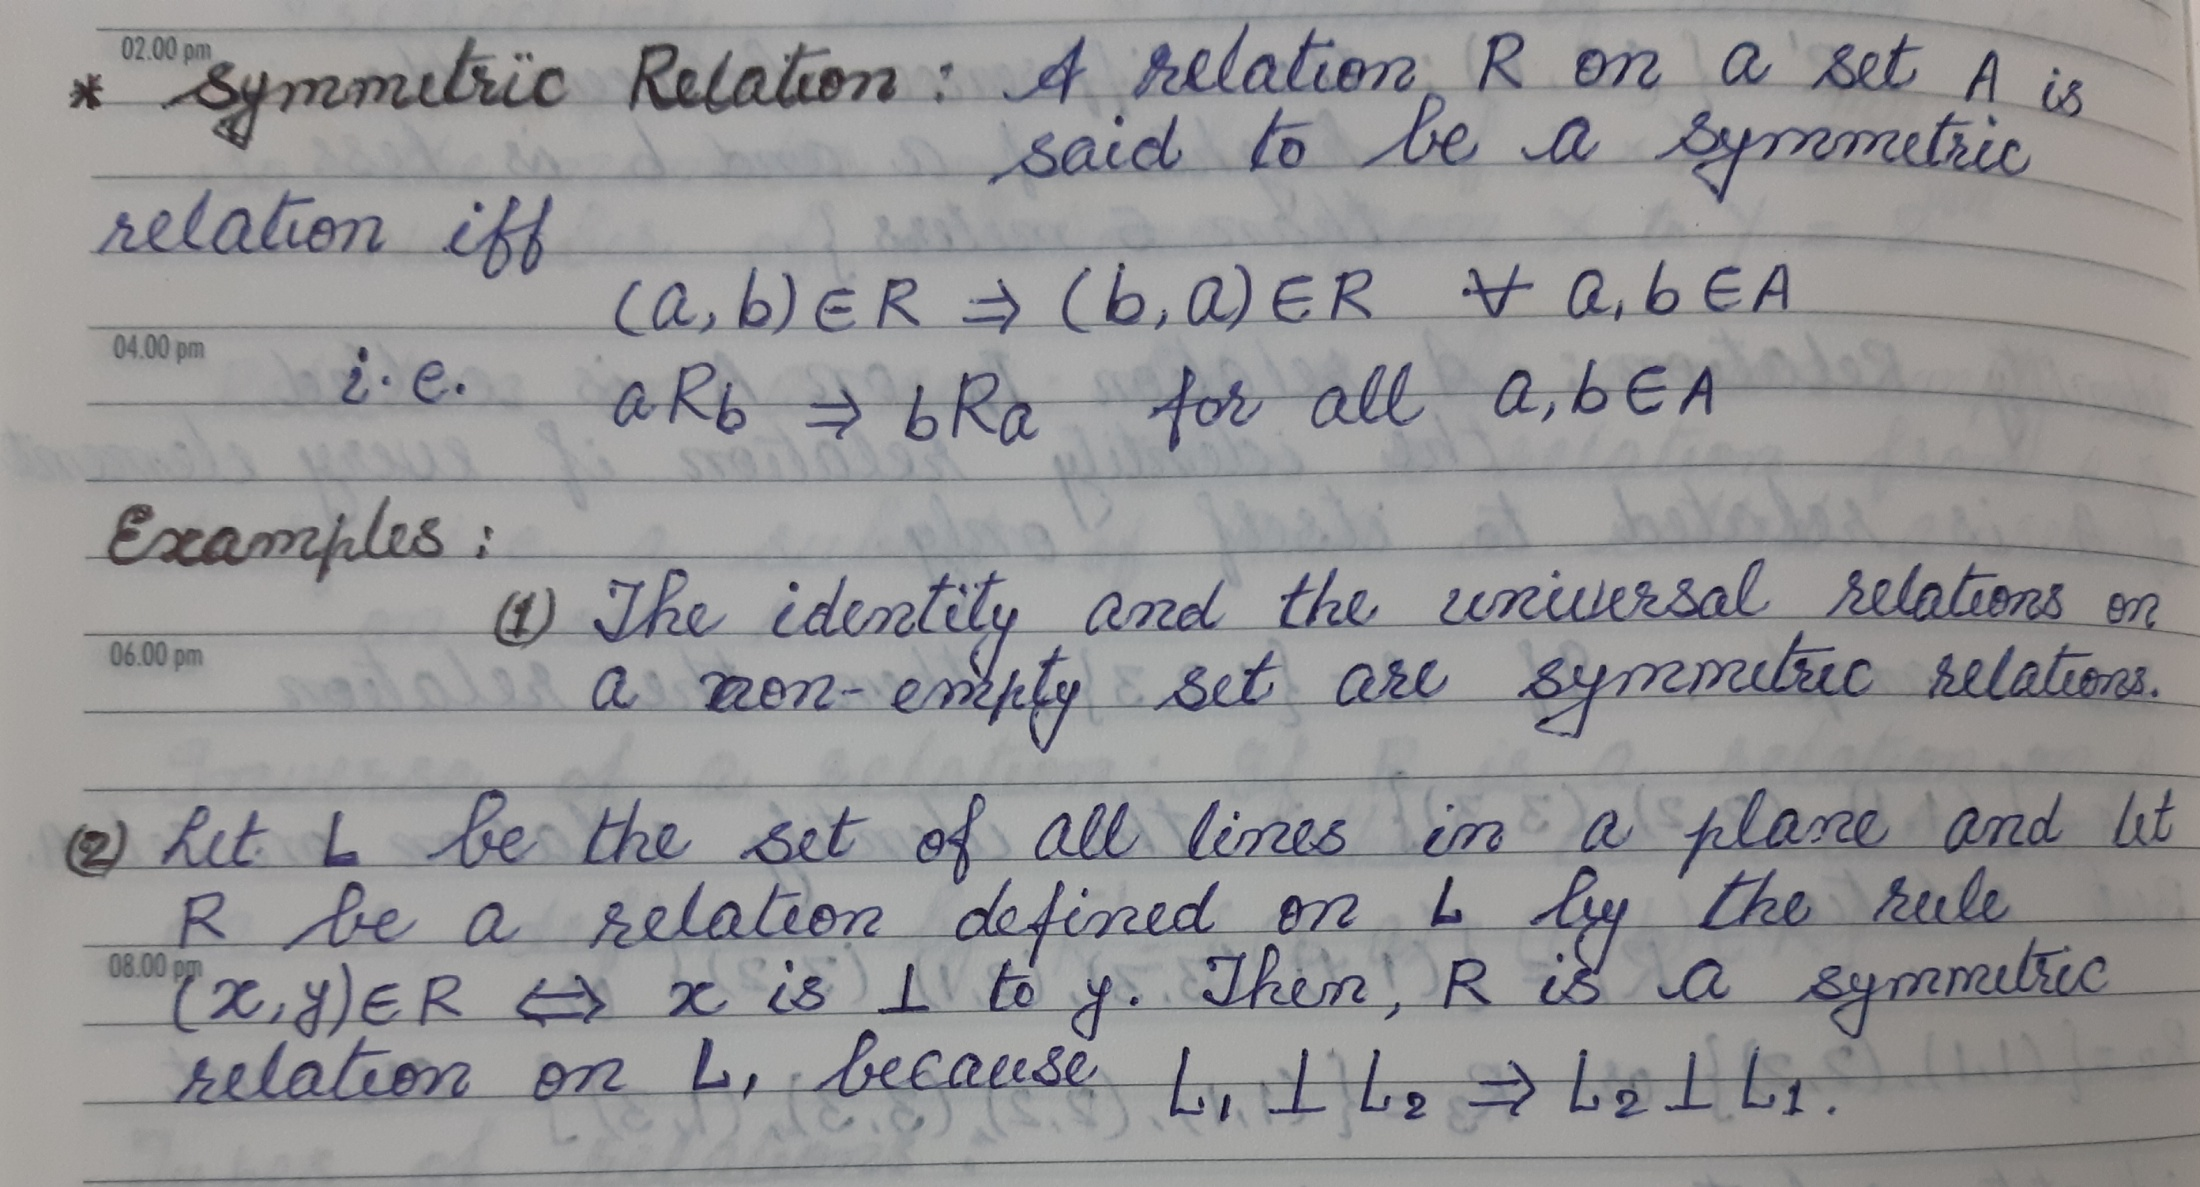 02.00 pm
* Symmetric Relation : A relation R on a set A is
said to be a symmetric
relation iff
(a, b) ∈ R ⇒ (b, a) ∈ R ∀ a, b ∈ A
04.00 pm
i.e. aRb ⇒ bRa for all a, b ∈ A
Examples :
(1) The identity and the universal relations on
06.00 pm
a non-empty set are symmetric relations.
(2) Let L be the set of all lines in a plane and let
R be a relation defined on L by the rule
08.00 pm
(x, y) ∈ R ⇔ x is ⊥ to y. Then, R is a symmetric
relation on L, because L₁ ⊥ L₂ ⇒ L₂ ⊥ L₁.